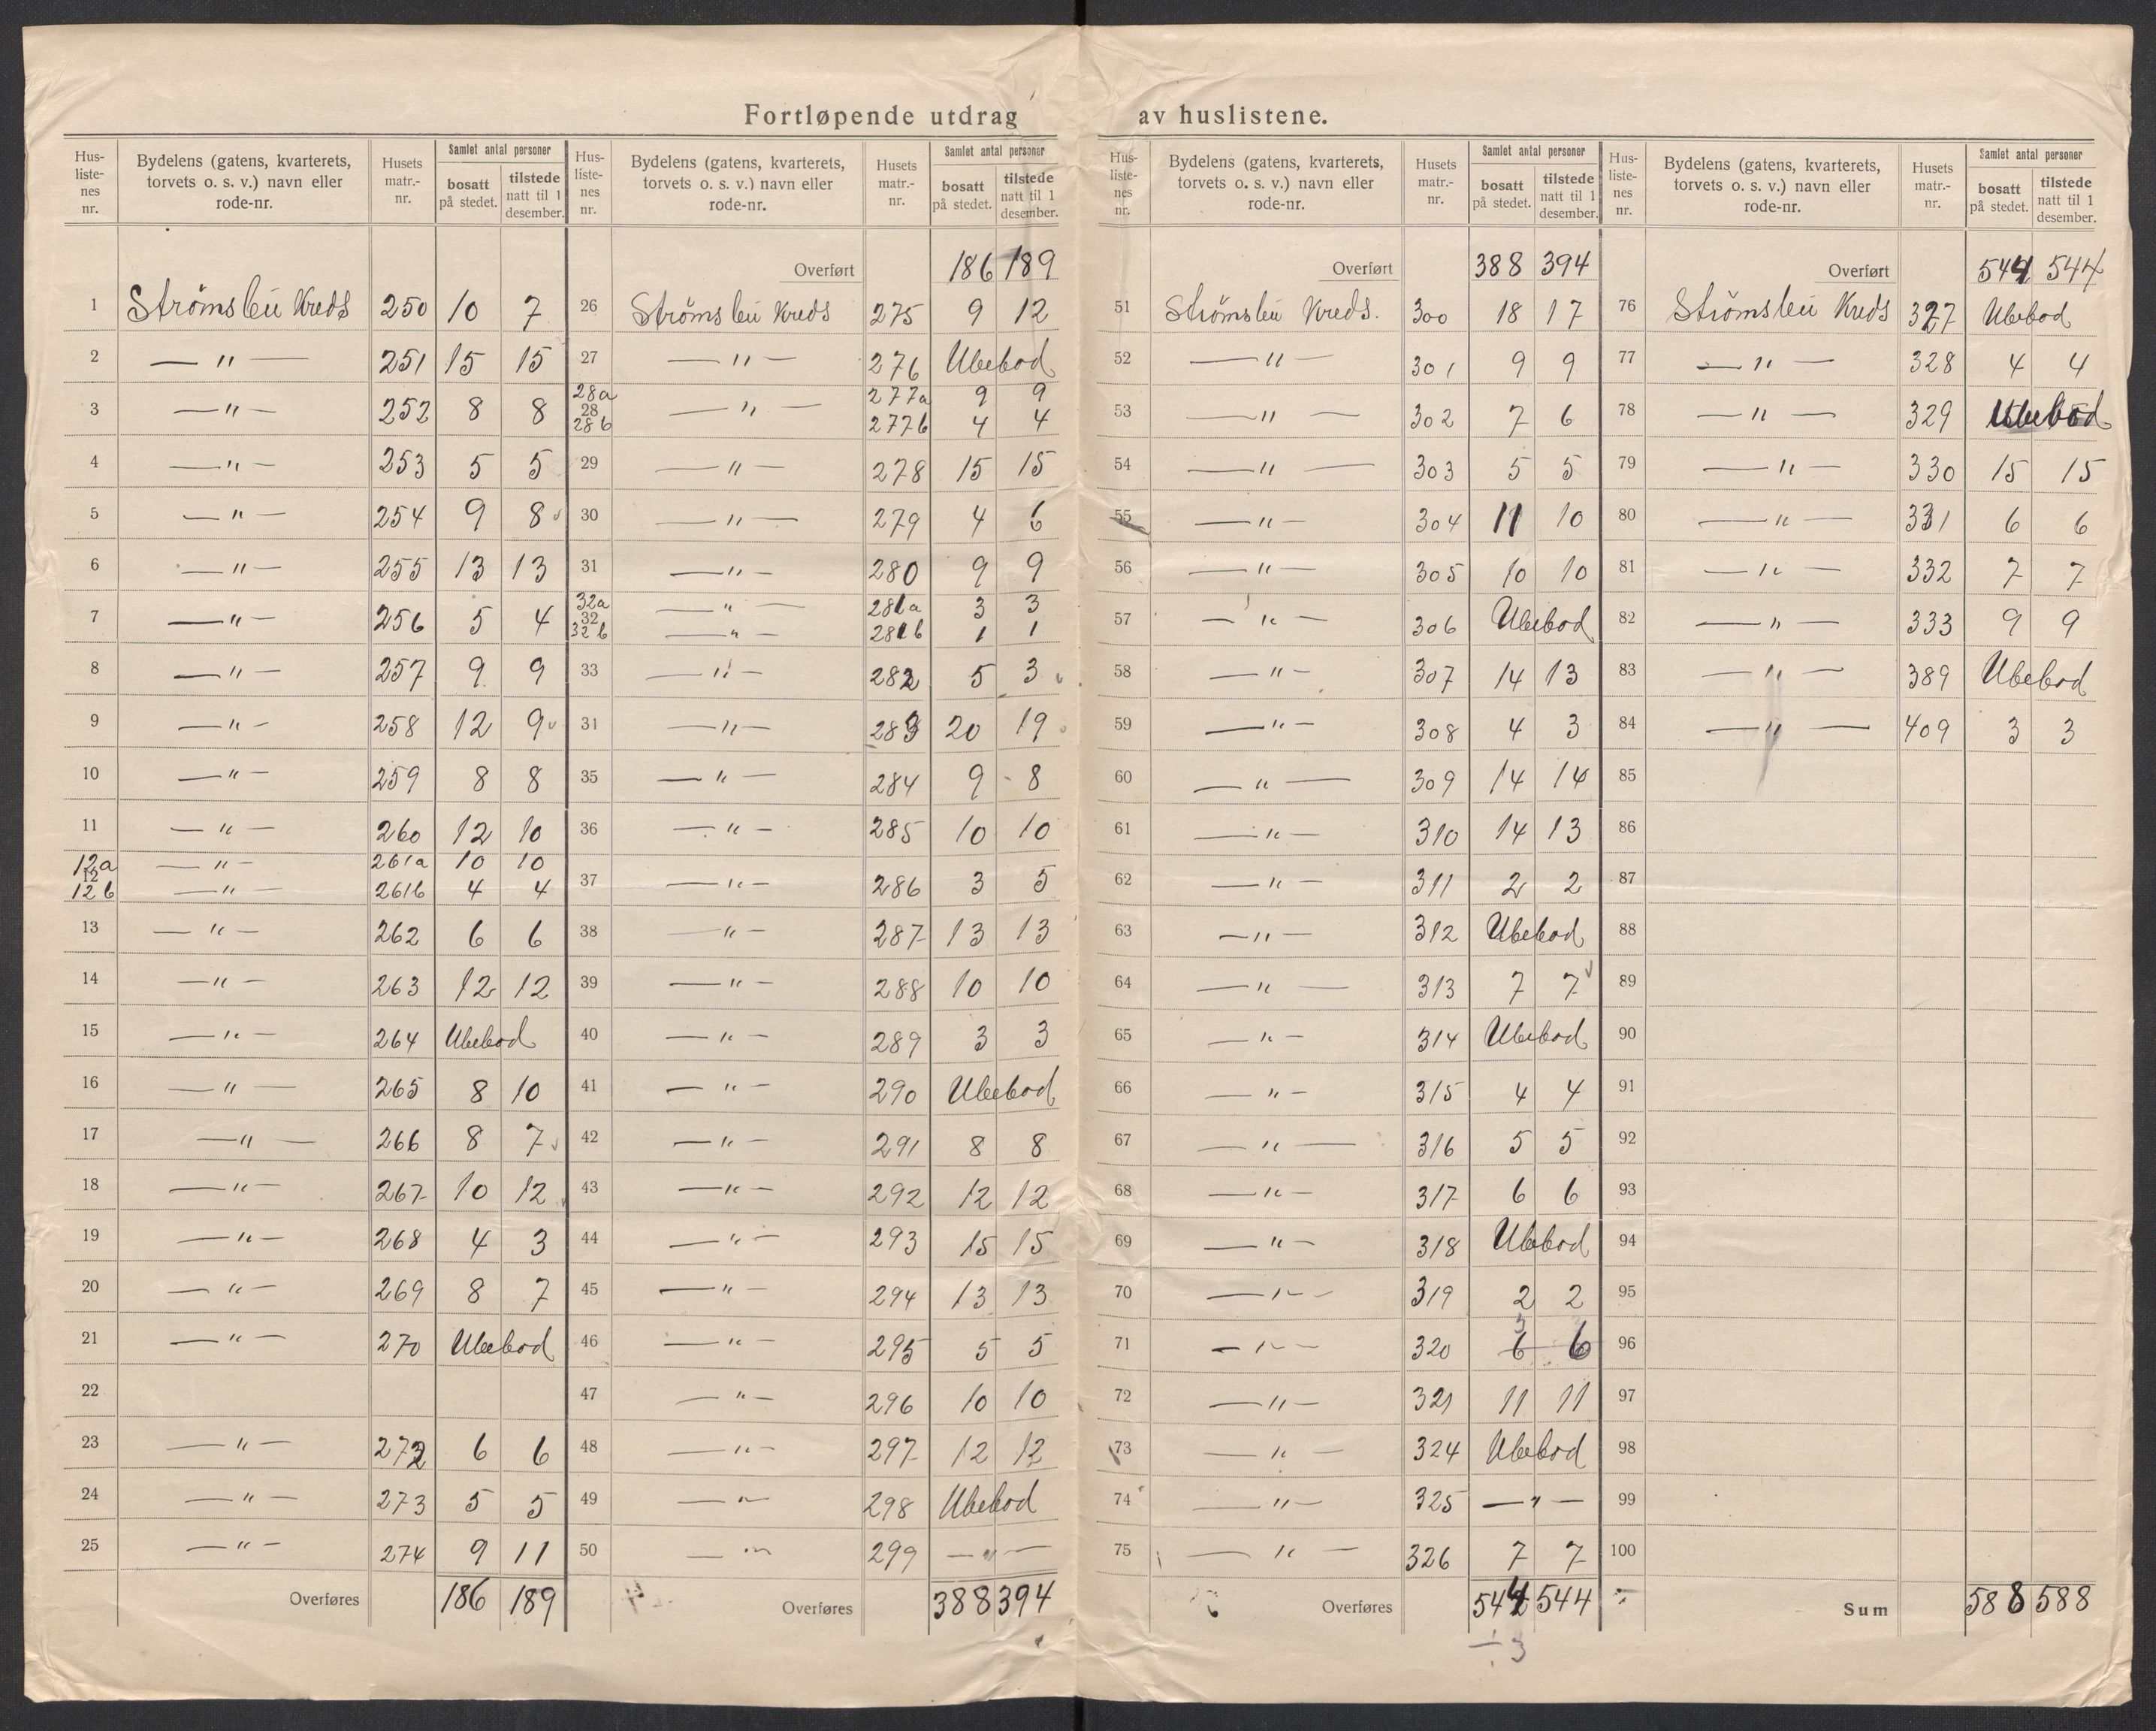 Fortløpende utdrag av huslistene.
Hus-liste-nes nr. | Bydelens (gatens, kvarterets, torvets o. s. v.) navn eller rode-nr. | Husets matr.-nr. | Samlet antal personer bosatt på stedet. | tilstede natt til 1 desember.
1 Strömsleii Kreds 250 10 7
2 — " — 251 15 15
3 — " — 252 8 8
4 — " — 253 5 5
5 — " — 254 9 8
6 — " — 255 13 13
7 — " — 256 5 4
8 — " — 257 9 9
9 — " — 258 12 9
10 — " — 259 8 8
11 — " — 260 12 10
12a — " — 261a 10 10
12
12b — " — 261b 4 4
13 — " — 262 6 6
14 — " — 263 12 12
15 — " — 264 Ubebod
16 — " — 265 8 10
17 — " — 266 8 7
18 — " — 267 10 12
19 — " — 268 4 3
20 — " — 269 8 7
21 — " — 270 Ubebod
22
23 — " — 272 6 6
24 — " — 273 5 5
25 — " — 274 9 11
Overføres 186 189
Hus-liste-nes nr. | Bydelens (gatens, kvarterets, torvets o. s. v.) navn eller rode-nr. | Husets matr.-nr. | Samlet antal personer bosatt på stedet. | tilstede natt til 1 desember.
Overført 186 189
26 Strömsleii Kreds 275 9 12
27 — " — 276 Ubebod
28a — " — 277a 9 9
28
28b 277b 4 4
29 — " — 278 15 15
30 — " — 279 4 6
31 — " — 280 9 9
32a — " — 281a 3 3
32
32b — " — 281b 1 1
33 — " — 282 5 3
31 — " — 283 20 19
35 — " — 284 9 8
36 — " — 285 10 10
37 — " — 286 3 5
38 — " — 287 13 13
39 — " — 288 10 10
40 — " — 289 3 3
41 — " — 290 Ubebod
42 — " — 291 8 8
43 — " — 292 12 12
44 — " — 293 15 15
45 — " — 294 13 13
46 — " — 295 5 5
47 — " — 296 10 10
48 — " — 297 12 12
49 — " — 298 Ubebod
50 — " — 299 — " —
Overføres 388 394
Hus-liste-nes nr. | Bydelens (gatens, kvarterets, torvets o. s. v.) navn eller rode-nr. | Husets matr.-nr. | Samlet antal personer bosatt på stedet. | tilstede natt til 1 desember.
Overført 388 394
51 Strömsleii Kreds. 300 18 17
52 — " — 301 9 9
53 — " — 302 7 6
54 — " — 303 5 5
55 — " — 304 11 10
56 — " — 305 10 10
57 — " — 306 Ubebod
58 — " — 307 14 13
59 — " — 308 4 3
60 — " — 309 14 14
61 — " — 310 14 13
62 — " — 311 2 2
63 — " — 312 Ubebod
64 — " — 313 7 7
65 — " — 314 Ubebod
66 — " — 315 4 4
67 — " — 316 5 5
68 — " — 317 6 6
69 — " — 318 Ubebod
70 — " — 319 2 2
3
71 — " — 320 6 6
72 — " — 321 11 11
73 — " — 324 Ubebod
74 — " — 325 — " —
75 — " — 326 7 7
Overføres 544 544
÷ 3
Hus-liste-nes nr. | Bydelens (gatens, kvarterets, torvets o. s. v.) navn eller rode-nr. | Husets matr.-nr. | Samlet antal personer bosatt på stedet. | tilstede natt til 1 desember.
Overført 544 544
76 Strömsleii Kreds 327 Ubebod
77 — " — 328 4 4
78 — " — 329 Ubebod
79 — " — 330 15 15
80 — " — 331 6 6
81 — " — 332 7 7
82 — " — 333 9 9
83 — " — 389 Ubebod
84 — " — 409 3 3
85
86
87
88
89
90
91
92
93
94
95
96
97
98
99
100
Sum 588 588